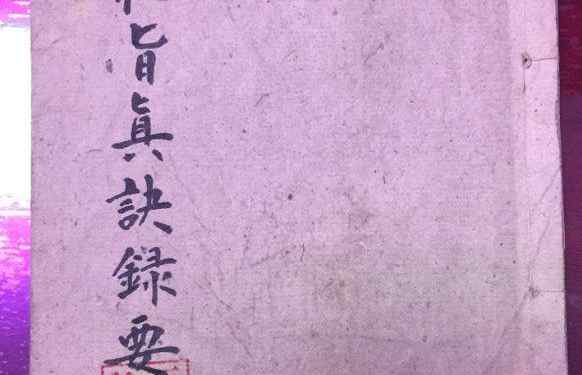 旨真訣録要